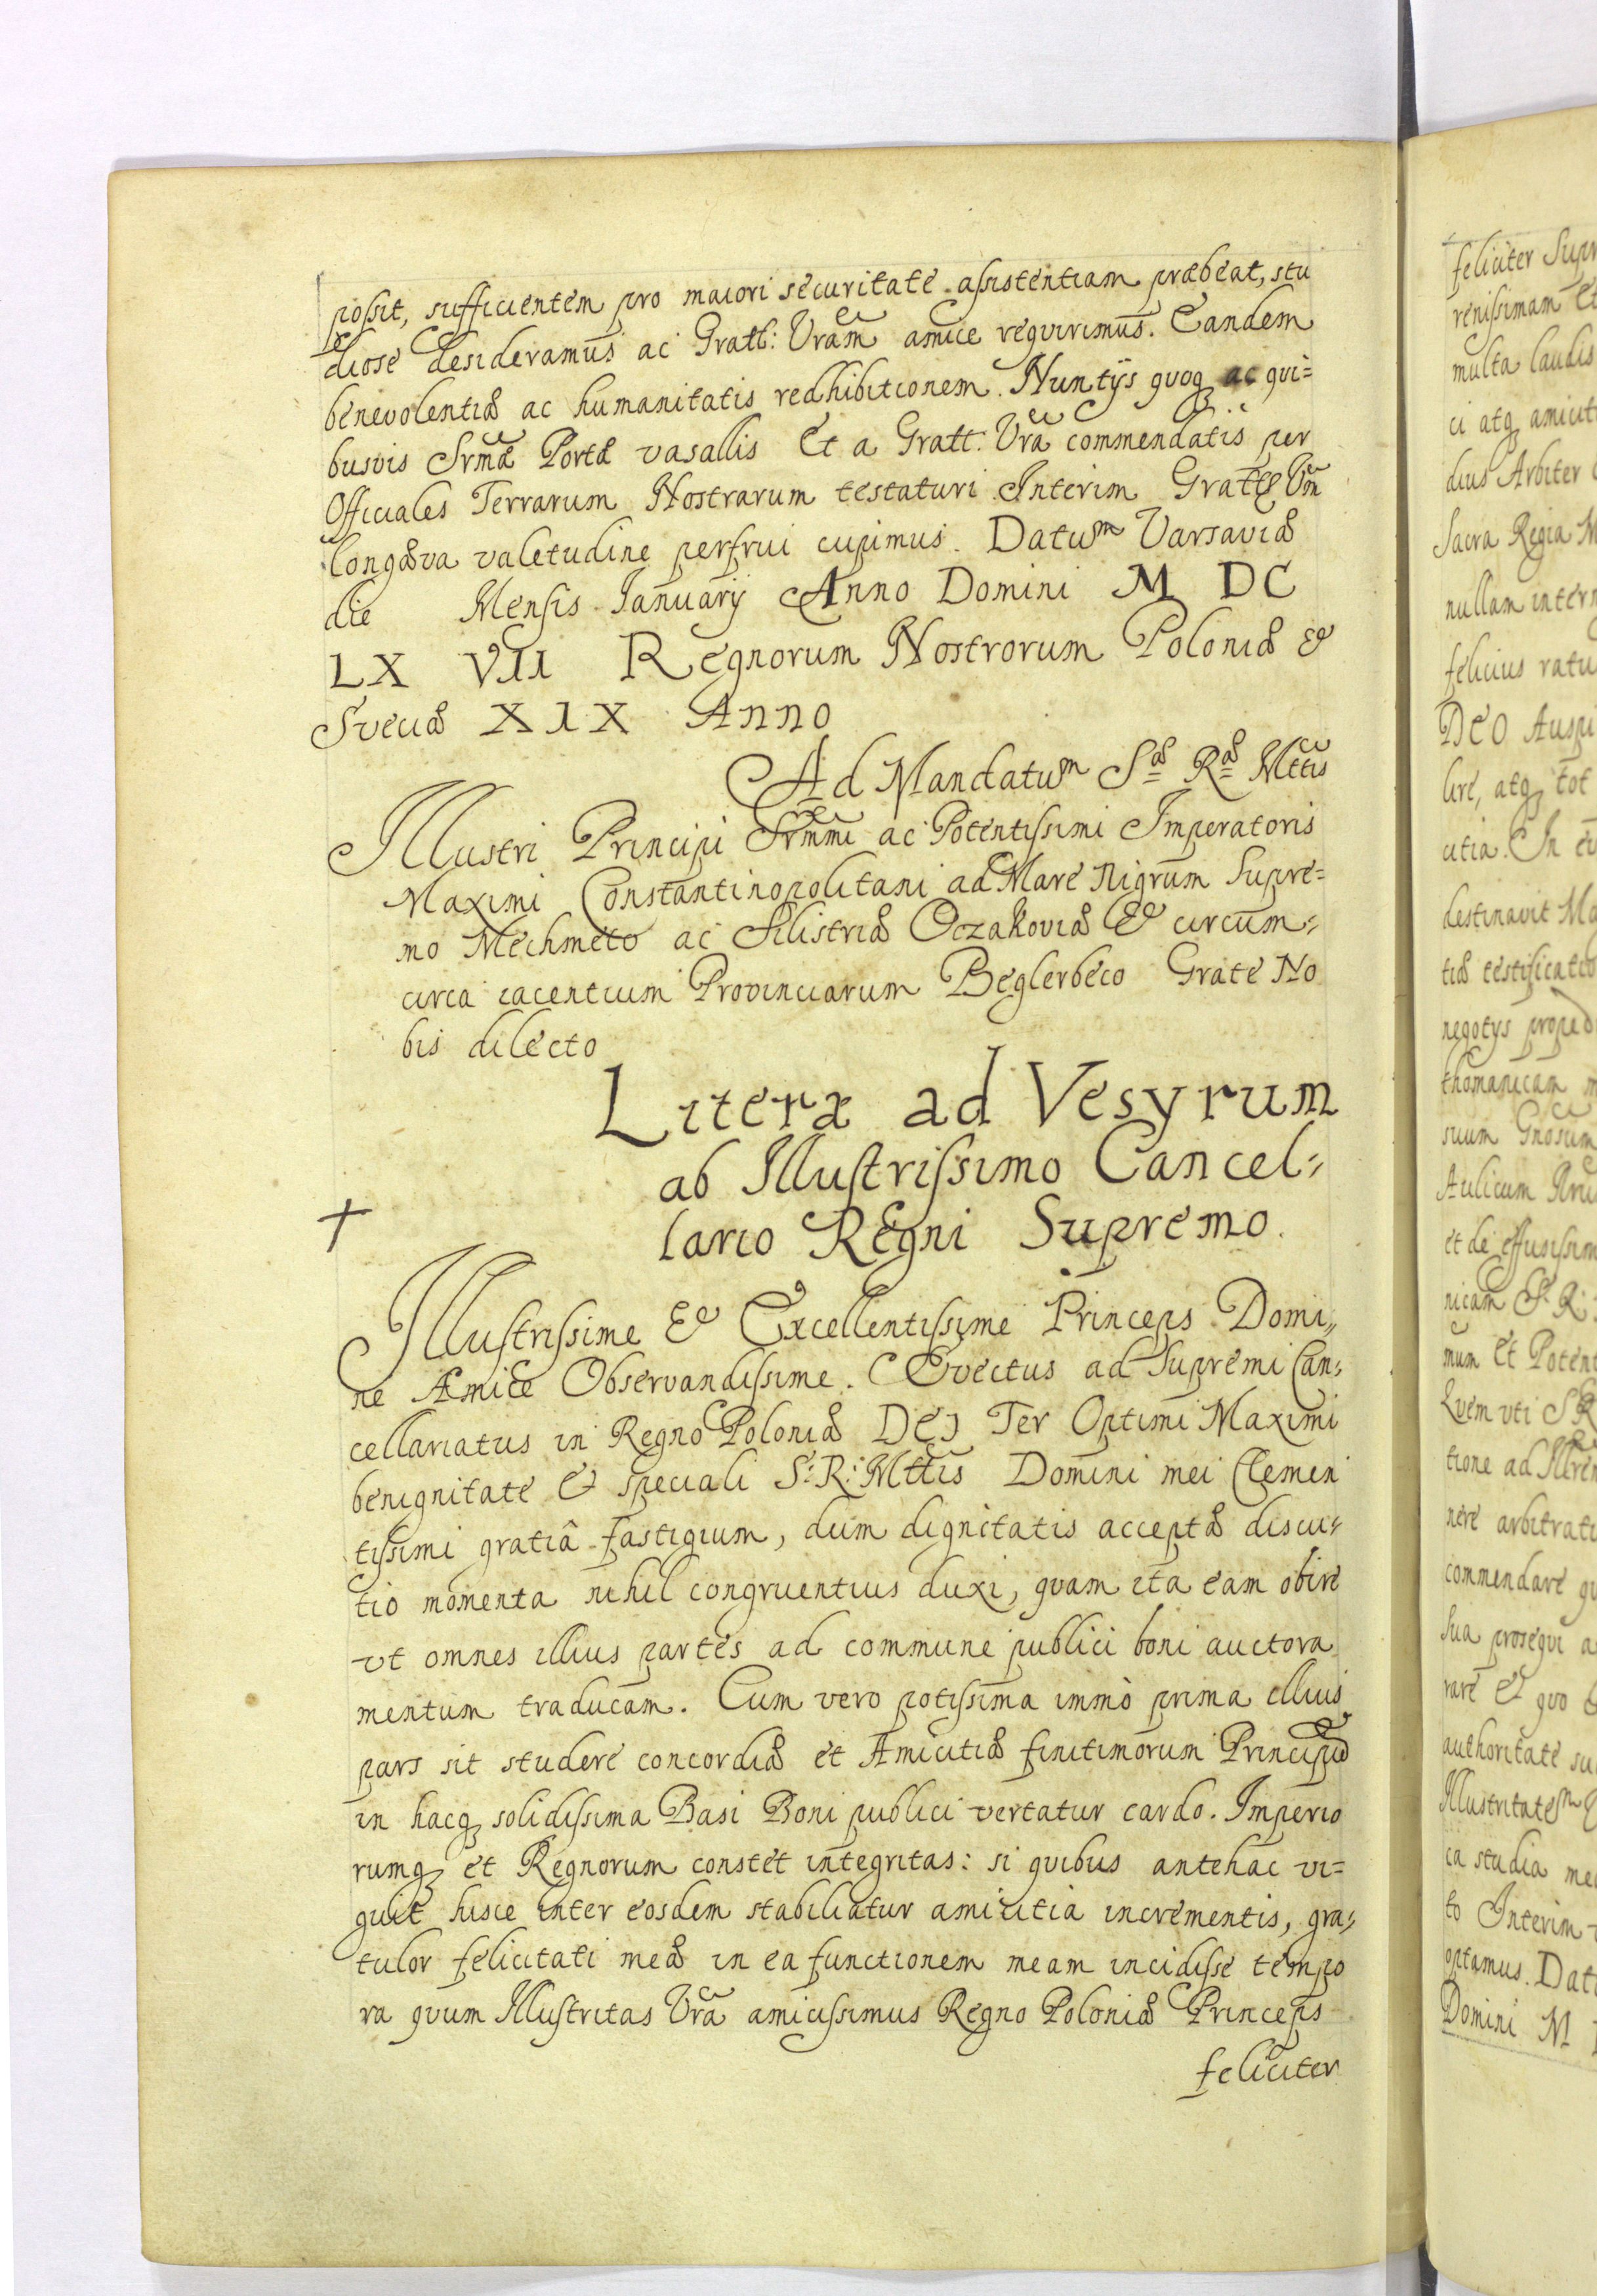 possit, sufficientem pro maiori securitate assistentiam præbeat, stu
diose desideramus ac Gratt: Vram amice requirimus. Eandem
benevolentiæ ac humanitatis redhibitionem Nuntijs quoq ac qui=
busvis Srmæ Portæ vasallis Et a Gratt: Vra commendatis per
Officiales Terrarum Nostrarum testaturi Interim Gratte Vm
longæva valetudine perfrui cupimus. Datum Varsaviæ
die Mensis Ianuarij Anno Domini M DC
LX VII Regnorum Nostrorum Poloniæ &
Sveciæ XIX Anno
Ad Mandatum Sæ Ræ Mttis
Illustri Principi Srmmi ac Potentissimi Imperatoris
Maximi Constantinopolitani ad Mare Nigrum Supre=
mo Mechmeto ac Silistriæ Oczakoviæ & circum=
circa iacentium Provinciarum Beglerbeco Grate No
bis dilecto
Literæ ad Vesyrum
ab Illustrissimo Cancel=
lario Regni Supremo.
Illustrissime & Excellentissime Princeps Domi=
ne Amice Observandissime. Evectus ad Supremi Can=
cellariatus in Regno Poloniæ DEI Ter Optimi Maximi
benignitate & speciali S: R: Mttis Domini mei Clemen
tissimi gratiâ fastigium, dum dignitatis acceptæ discu=
tio momenta nihil congruentius duxi, quam ita eam obire
ut omnes illius partes ad commune publici boni auctora
mentum traducam. Cum vero potissima immò prima illius
pars sit studere concordiæ et Amicitiæ finitimorum Principū
in hacq solidissima Basi Boni publici vertatur cardo. Imperio
rumq et Regnorum constet integritas: si quibus antehac vi=
guit hisce inter eosdem stabiliatur amicitia incrementis, gra=
tulor felicitati meæ in ea functionem meam incidisse tempo
ra quum Illustritas Vra amicissimus Regno Poloniæ Princeps
feliciter